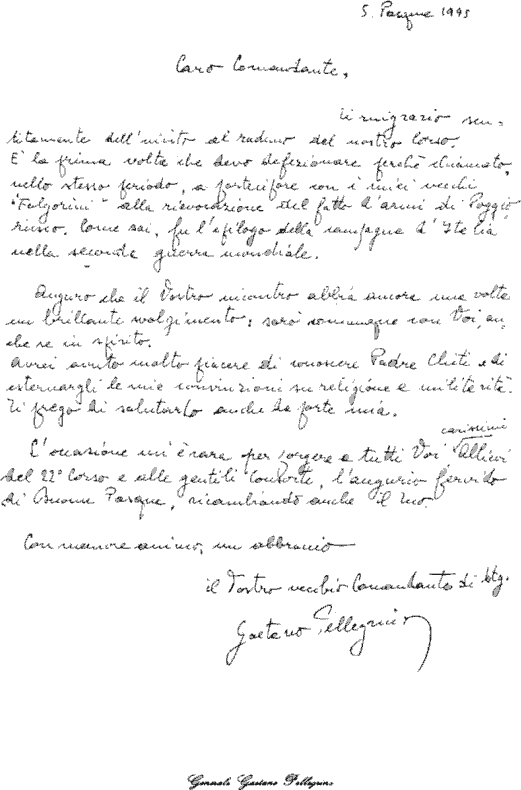 S. Pasqua 1995
Caro Comandante,
Ti ringrazio sen-
titamente dell'invito al raduno del nostro Corso.
E' la prima volta che devo defezionare perchè chiamato,
nello stesso periodo, a partecipare con i miei vecchi
"Folgorini" alla rievocazione del fatto d'armi di Poggio
rusco. Come sai, fu l'epilogo della campagna d'Italia
nella seconda guerra mondiale.
Auguro che il Vostro incontro abbia ancora una volta
un brillante svolgimento: sarò comunque con Voi, an-
che se in spirito.
Avrei avuto molto piacere di conoscere Padre Chiti e di
esternargli le mie convinzioni su religione e militarità.
Ti prego di salutarlo anche da parte mia.
L'occasione mi è cara per porgere a tutti Voi carissimi Allievi
del 22° Corso e alle gentili Consorti, l'augurio fervido
di Buona Pasqua, ricambiando anche il tuo.
Con memore animo, un abbraccio
il Vostro vecchio Comandante di btg.
Gaetano Pellegrino
Generale Gaetano Pellegrino